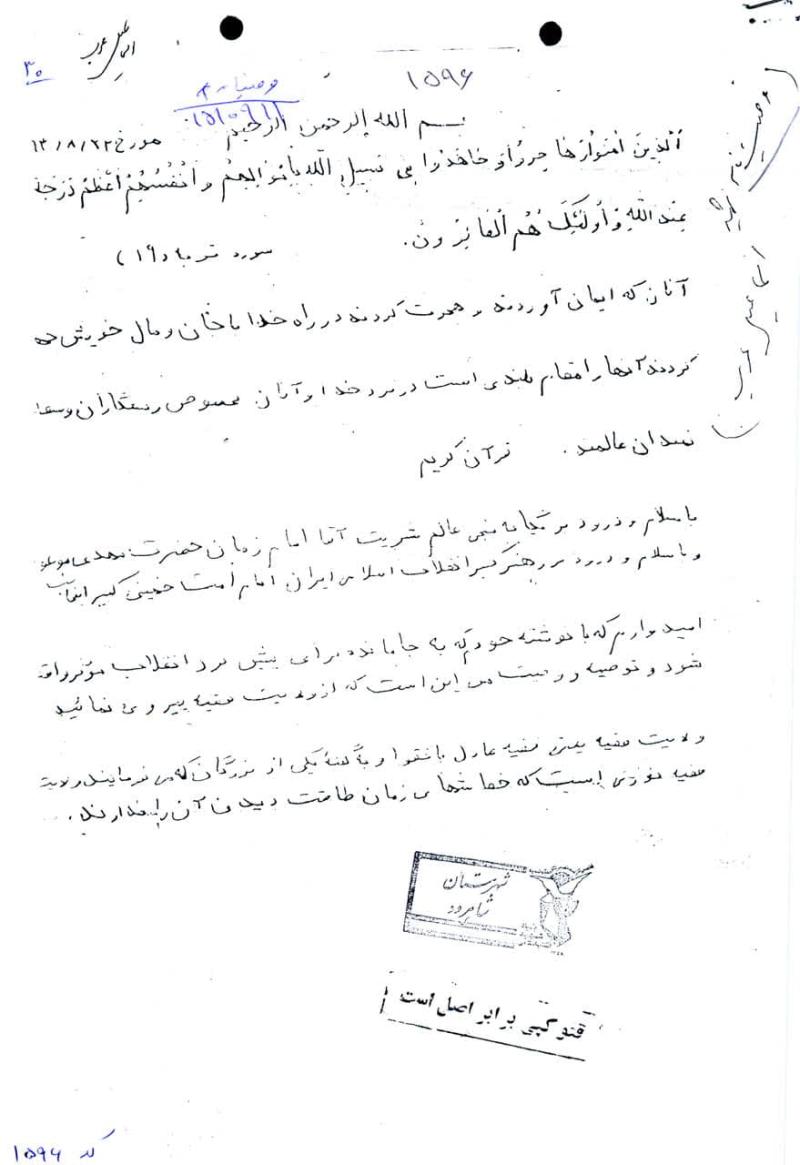 ۳۰
۱۵۹۶
بسم الله الرحمن الرحیم
الذین امنوا و هاجروا و جاهدوا فی سبیل الله باموالهم و انفسهم اعظم درجة
عند الله و اولئک هم الفائزون.
سوره توبه (۱۹)
آنان که ایمان آوردند و هجرت کردند در راه خدا با جان و مال خویش
کردند آنها را مقام بلندی است در نزد خدا و آنان مخصوص رستگاران و سعا
تمندان عالمند. قرآن کریم
با سلام و درود بر یگانه منجی عالم بشریت آقا امام زمان حضرت مهدی موعود
و با سلام و درود بر رهبر کبیر انقلاب اسلامی ایران امام امت خمینی کبیر
امیدوارم که با نوشته خودم که به جا مانده برای پیش برد انقلاب موثر واقع
شود و توصیه و وصیت من این است که از ولایت فقیه پیروی نمائید
ولایت فقیه یعنی فقیه عادل با تقوا و به گفته یکی از بزرگان که می فرمایند ولایت
فقیه نوری است که خفاشهای زمان طاقت دیدن آن را ندارند.
شهرستان
شاهرود
فتوکپی برابر اصل است
کد ۱۵۹۶